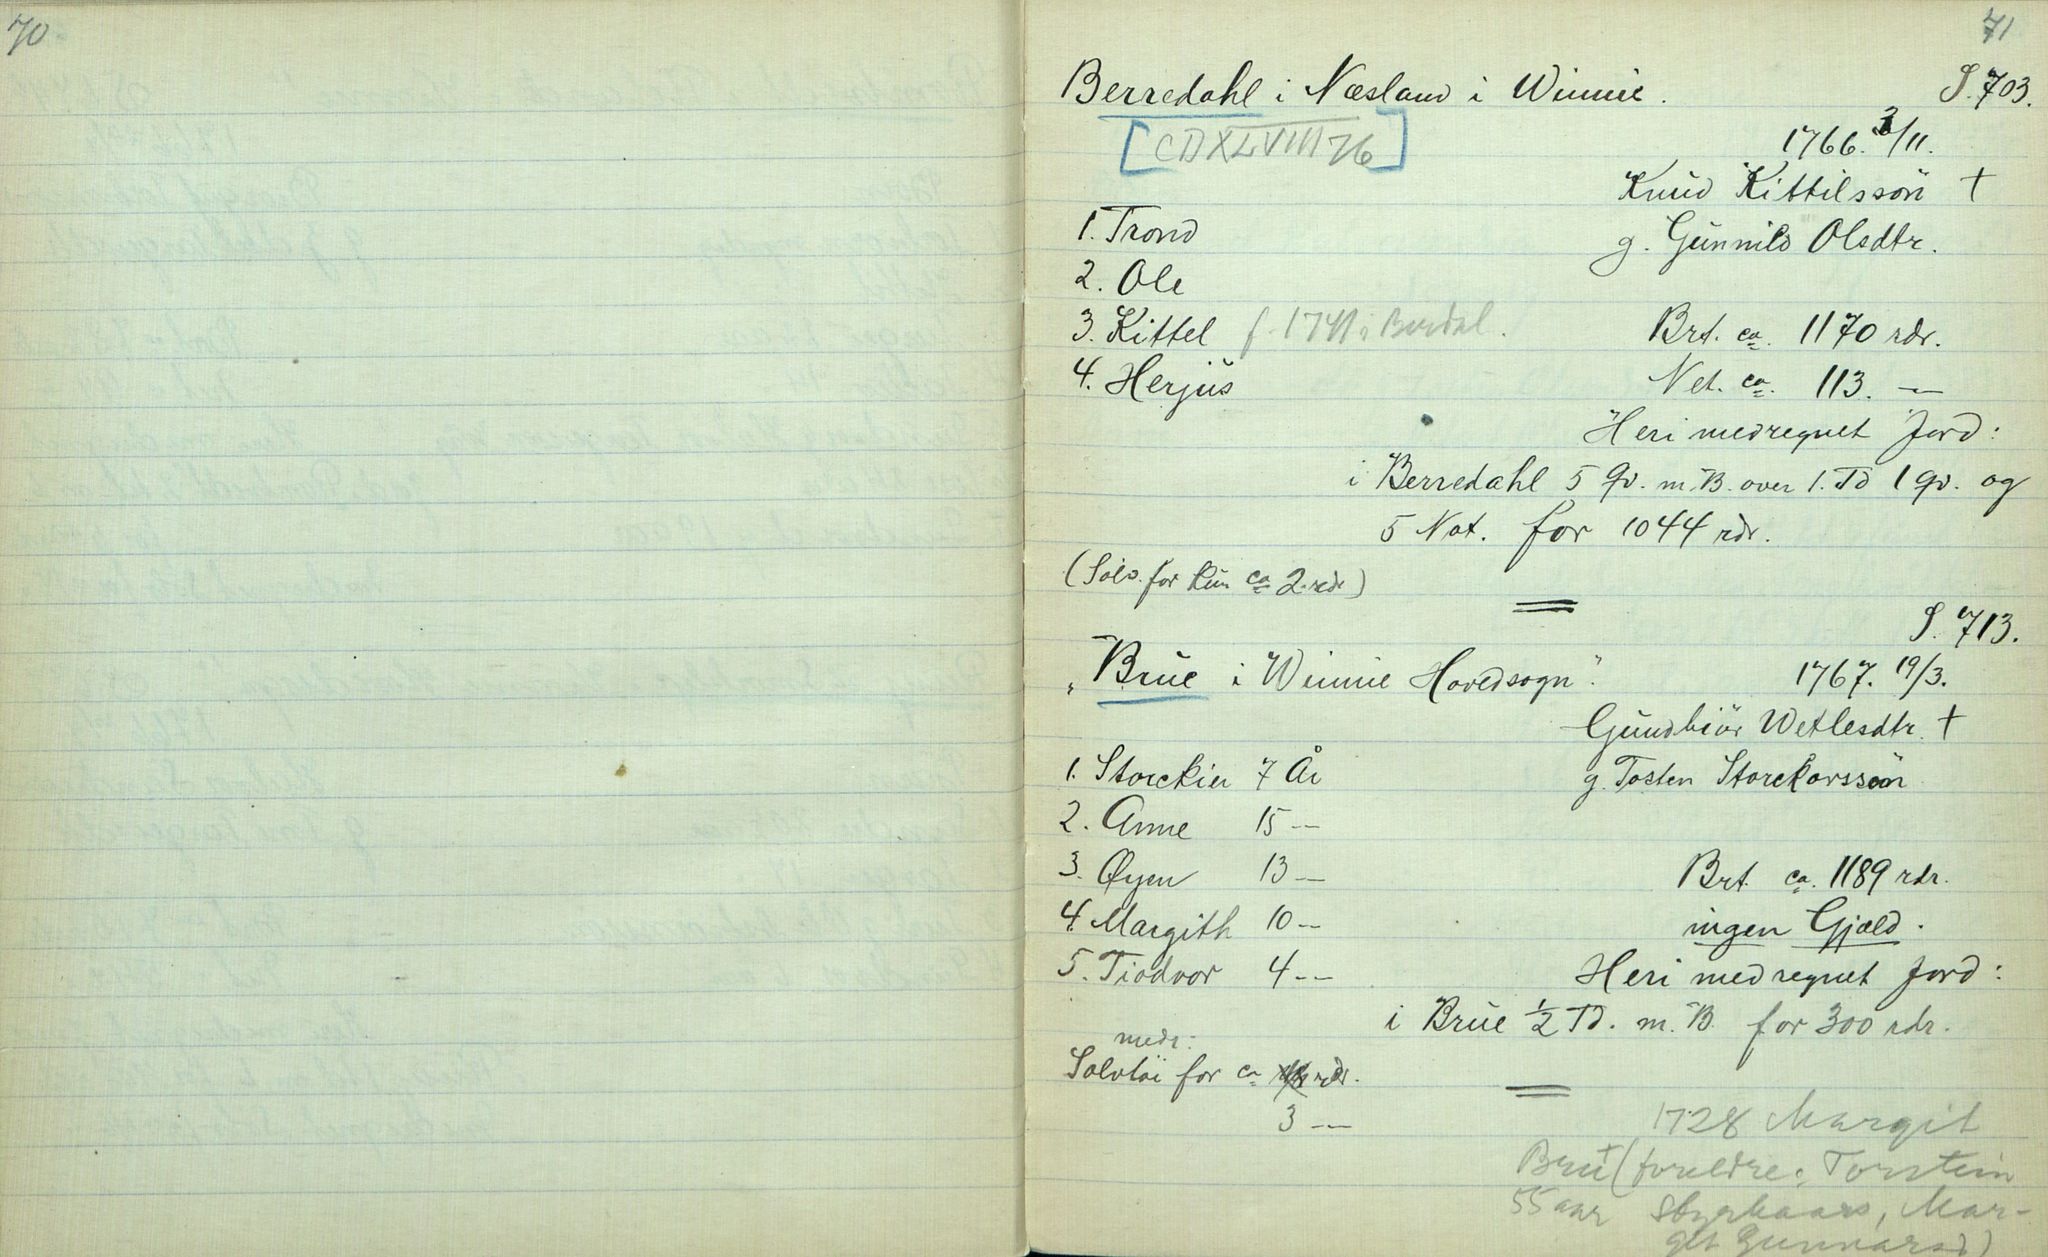 70
71
Berredahl i Næsland i Winnie.
S. 703.
[CDXLVIII 76]
1766. 3/11.
Knud Kittilssön †
1. Trond
g. Gunnild Olsdtr.
2. Ole
3. Kittel f. 1741 i Berdal.
Brt. ca. 1170 rdr.
4. Herjus
Net. ca. 113. —
Heri medregnet Jord:
i Berredahl 5 Qv. m. B. over 1. Td 1 qv. og
5 Nat. for 1044 rdr.
(Sölv. for kun ca 2 rdr)
S. 713.
„Brue i Winnie Hovedsogn".
1767. 19/3.
Gundbiör Wetlesdtr. †
1. Storckier 7 År
g. Tosten Storckorssön
2. Anne 15 —
3. Øyen 13 —
Brt. ca. 1189 rdr.
4. Margith 10 —
ingen Gjæld.
5. Tiodvor 4 —
Heri medregnet Jord:
i Brue ½ Td. m. B. for 300 rdr.
medr:
Solvtöi for ca rdr.
3 —
1728 Margit
Bru † (foreldre: Torstein
55 aar Mar-
git Gunnarsd)